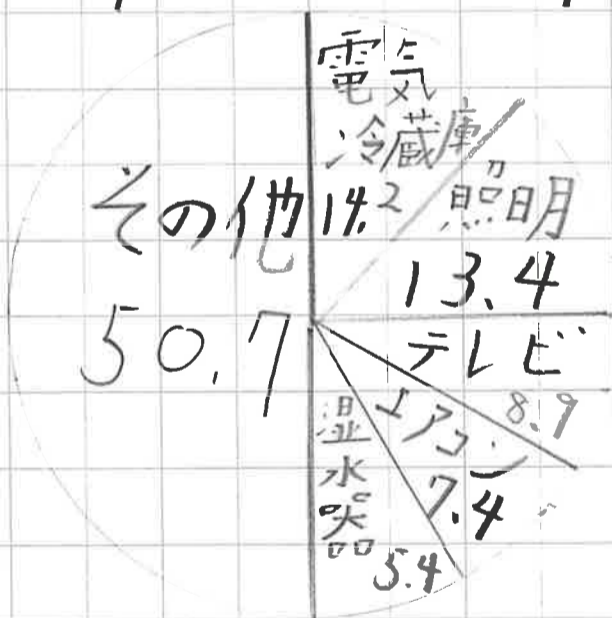 電気
冷蔵庫
14.2
照明
13.4
テレビ
8.9
エアコン
7.4
湿水器
5.4
その他
50.7